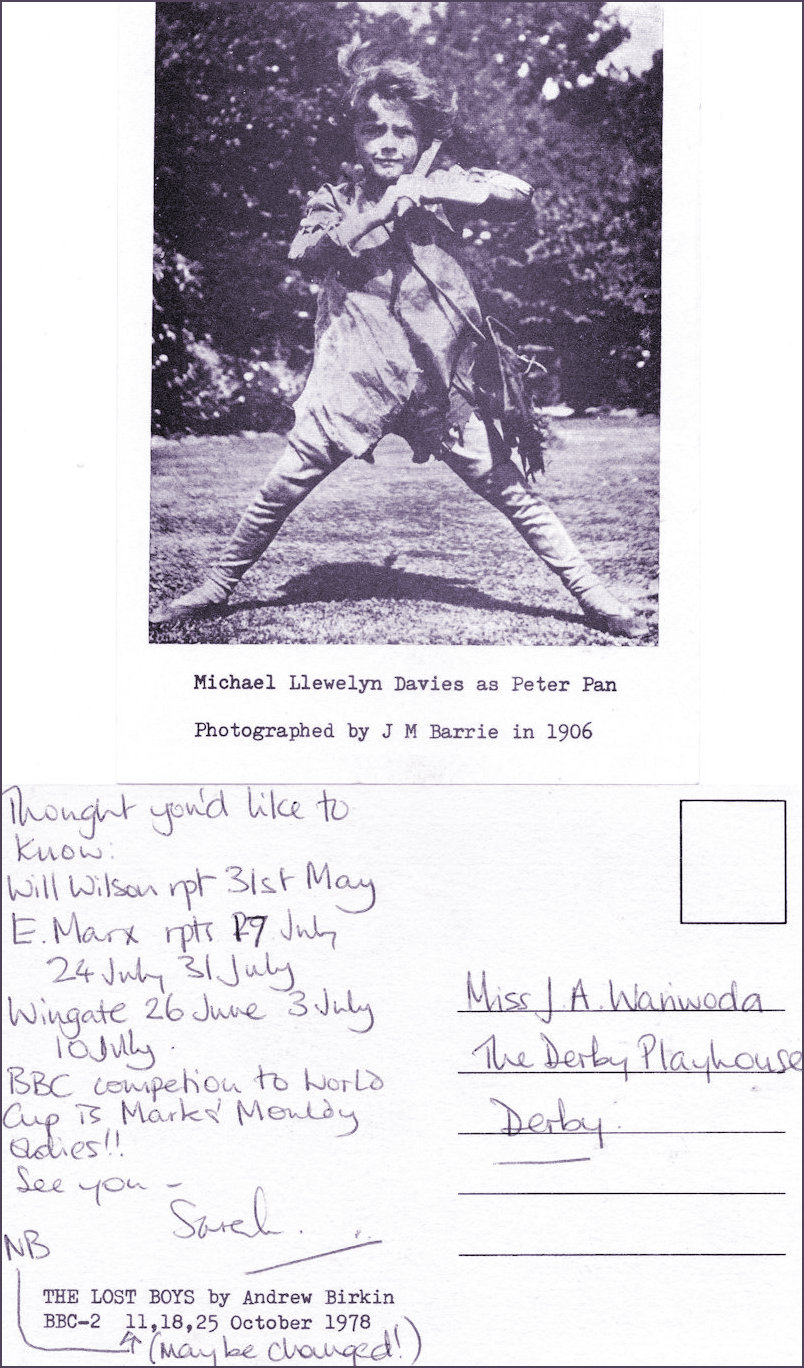 Michael Llewelyn Davies as Peter Pan
Photographed by J M Barrie in 1906
Thought you'd like to
know:
Will Wilson rpt 31st May
E. Marx rpts 17 July
24 July 31 July
Wingate 26 June 3 July
10 July.
BBC competion to World
Cup is Marks' Mouldy
Oldies!!
See you -
Sarah.
NB
THE LOST BOYS by Andrew Birkin
BBC-2 11,18,25 October 1978
(may be changed!)
Miss J. A. Wariwoda
The Derby Playhouse
Derby.